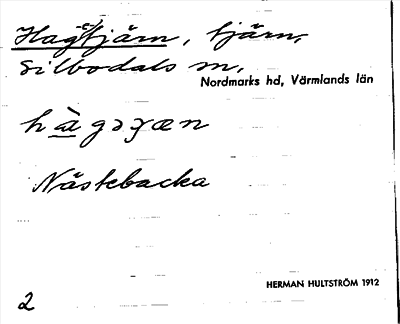 Hagetjärn, tjärn,
Silbodals sn,
Nordmarks hd, Värmlands län
Nästebacka
HERMAN HULTSTRÖM 1912
2